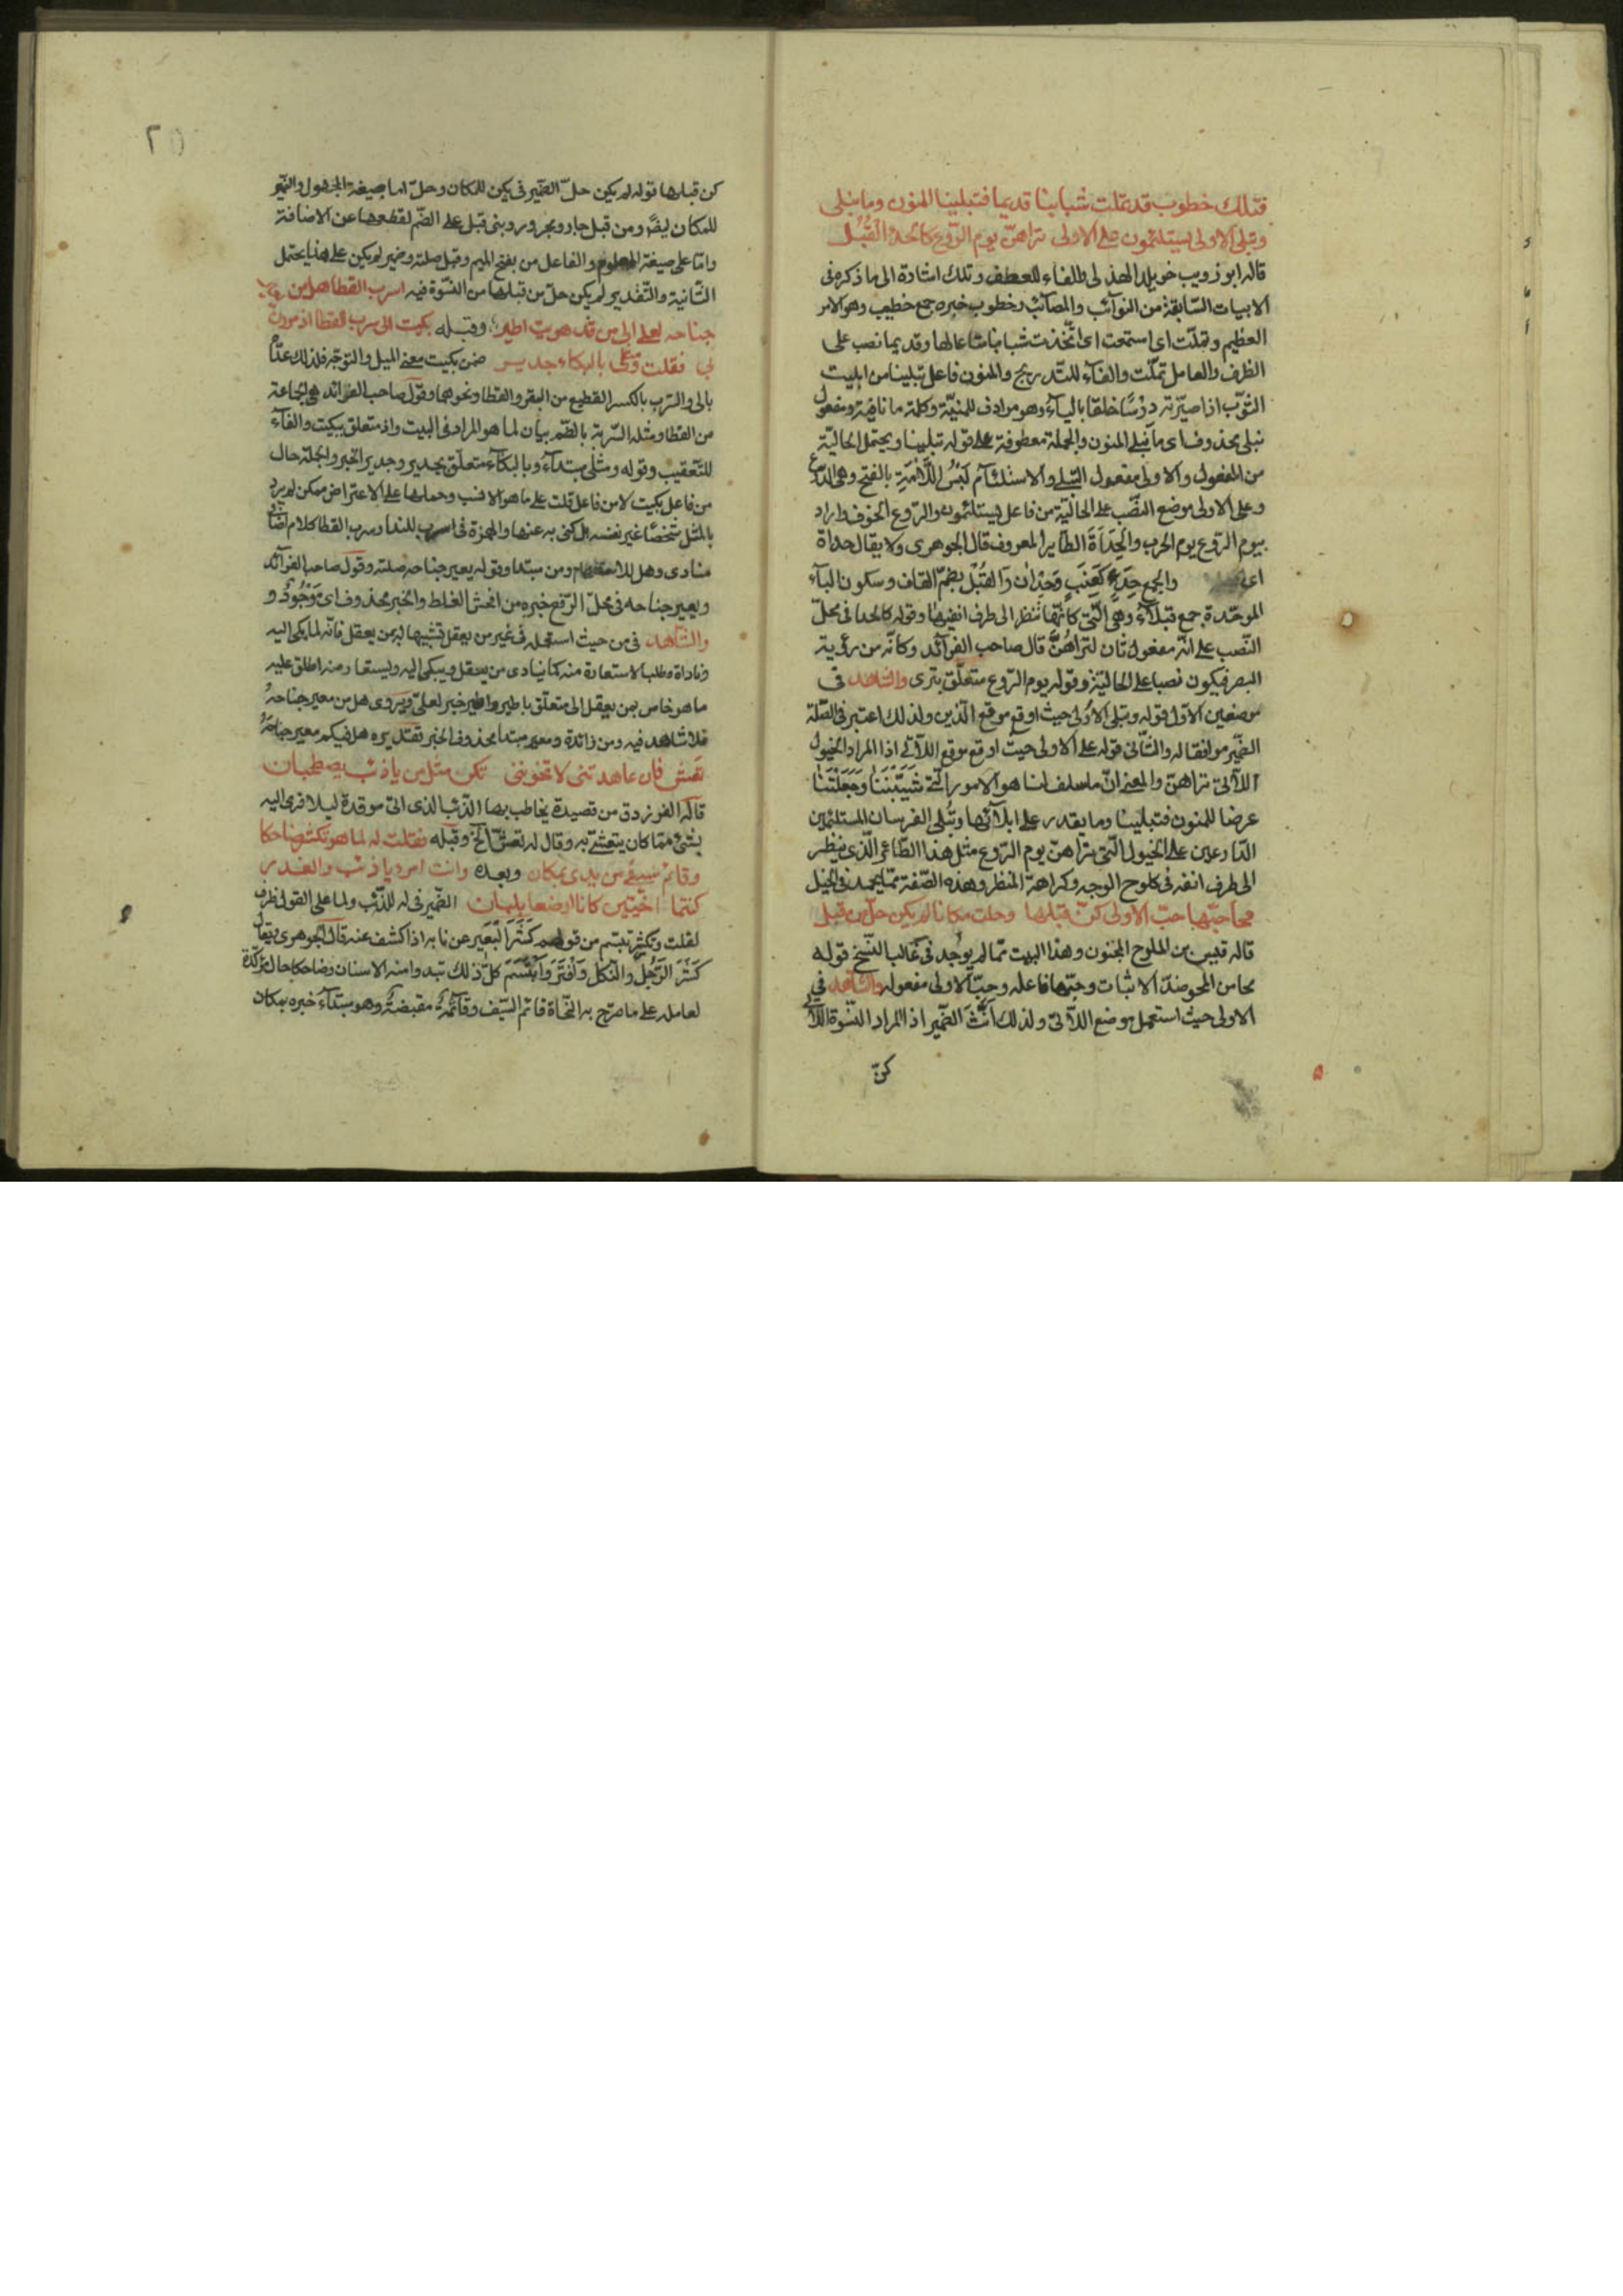 فتلك خطوب قد تملّت شبابنا قديما فتبلينا المنون وما نبلى
وتبلى الاولى يستلئمون على الاولى تراهنّ يوم الرّوع كالحدأ القُبْل
قاله ابو ذويب خويلد الهذلى والفاء للعطف وتلك اشارة الى ما ذكره فى
الابيات السّابقة من النوآئب والمصآئب وخطوب خبره جمع خطب وهو الامر
العظيم وتملّت اى استمتعت اى اتّخذت شبابنا متاعالها وقديما نصب على
الظرف والعامل تملّت والفآء للتّدريج والمنون فاعل تبلينا من ابليت
الثوب اذا صيّرته درْسًا خلقا باليآء وهو مرادف للمنيّة وكلمة ما نافية ومفعول
نبلى محذوف اى ما نبلى المنون والجملة معطوفة على قوله تبلينا ويحتمل الحاليّة
من المفعول والاولى مفعول التبلى والاستلئآم لَبْسُ اللَّأمَةِ بالفتح وهى الدّرع
وعلى الاولى موضع النصّب على الحاليّة من فاعل يستلئمون والرّوع الخوف واراد
بيوم الرّوع يوم الحرب والحِدَأَةَ الطّاير المعروف قال الجوهرى ولا يقال حداة
والجمع حِدَء كَعِنَبٍ وَحِدْان وَالقُبْل بضمّ القاف وسكون البآء
الموحّدة جمع قبلآء وهى الّتى كانّها تنظر الى طرف انفها وقوله كالحدا فى محلّ
النّصب على انّه مفعول ثان لتراهُنَّ قال صاحب الفرآئد وكانّه من رؤية
البصر فيكون نصبا على الحاليّة وقوله يوم الرّوع متعلّق بترى والشاهد فى
موضعين الاوّل قوله وتبلى الاُولى حيث اوقع موقع الّذين ولذلك اعتبر فى الصّلة
الضّمير موافقا له والثّانى قوله على الاولى حيث اوقع موقع اللآتى اذا المراد الخيول
اللآتى تراهنّ والمعنى انّ ما سلف لنا هو الامور الّتى شَيَّبْنَنَا وَجَعَلْتَنْا
عرضا للمنون فتبلينا وما يقدر على ابلآئها وتُبلى الفرسان المستلئمين
الدّارعين على الخيول الّتى تراهنّ يوم الرّوع مثل هذا الطّاير الّذى ينظر
الى طرف انفه فى كلوح الوجه وكراهة المنظر وهذه الصّفة ممّا يحمد فى الخيل
محا حبّها حبّ الاولى كنّ قبلها وحلت مكانا لم يكن حلّ من قبل
قاله قيس بن الملوح المجنون وهذا البيت ممّا لم يوجد فى غالب النّسخ قوله
محا من المحو ضدّ الاثبات وحبّها فاعله وحبّ الاولى مفعوله والشّاهد فى
الاولى حيث استعمل موضع اللآتى ولذلك اَنَّثَ الضّمير اذ المراد النّسوة اللآتى
كنّ
كن قبلها قوله لم يكن حلّ الضّمير فى يكن للمكان وحلّ اما بصيغة المجهول والضّمير
للمكان ايضًا ومن قبل جار ومجرور وبنى قبل على الضّم لقطعها عن الاضافة
وامّا على صيغة المعلوم والفاعل من بفتح الميم وقبل صلته وضمير لم يكن على هذا يحتمل
الثّانية والتّقدير لم يكن حلّ من قبلها من النّسوة فيه اسرب القطا هل من يعير
جناحه لعلى الى من قد هويت اطير وقبله بكيت الى سرب القطا اذ مررن
بى فقلت ومثلى بالبكاء جدير ضمن بكيت معنى الميل والتوجّه فلذلك عدّاه
بالى والسّرب بالكسر القطيع من البقر والقطا ونحوهما وقول صاحب الفرائد هى الجماعة
من القطا ومثله السّربة بالضّم بيان لما هو المراد فى البيت واذ متعلق ببكيت والفآء
للتّعقيب وقوله ومثلى مبتدآء وبالبكآء متعلّق بجدير وجدير الخبر والجملة حال
من فاعل بكيت لا من فاعل قلت على ما هو الانسب وحملها على الاعتراض ممكن لم يرد
بالمثل شخصًا غير نفسه بل كنى به عنها والهمزة فى اسرب للندا وسرب القطا كلام اضافى
منادى وهل للاستفهام ومن مبتدا وقوله يعير جناحه صلته وقول صاحب الفرآئد
ويعير جناحه فى محلّ الرّفع خبره من افحش الغلط والخبر محذوف اى مَوْجُودٌ و
والشّاهد فى من حيث استعمله فى غير من يعقل تشبيها له بمن يعقل فانّه لما بكى اليه
وناداه وطلب الاستعارة منه كما ينادى من يعقل ويبكى اليه ويستعار منه اطلق عليه
ما هو خاص بمن يعقل الى متعلّق باطير واطير خبر لعلّى ويروى هل من معير جناحهُ
فلا شاهد فيه ومن زائدة ومعير مبتدأ محذوف الخبر تقديره هل فيكم معير جناحهُ
تعش فان عاهدتنى لا تخوننى نكن مثل من ياذئب يصطحبان
قاله الفرزدق من قصيدة يخاطب بها الذّئب الذى اتى موقدة ليلا فرمى اليه
بشئ ممّا كان يتعشّى به وقال له تعش الخ وقبله فقلت له لما هو تكشّر ضاحكا
وقائم سيفى من يدى بمكان وبعده وانت امرؤ ياذئب والغدر
كنتما اخيّين كانا ارضعا بلبان الضّمير فى له للذّئب ولما على القول ظرف
لقلت وتكشّر تبسّم من قولهم كَشَرَ الْبَعَير عن نابه اذا كشف عنه قال الجوهرى يقال
كَشَرَ الرَّجُلُ وانكل وَاَفْتَرَ وَاَبْتَسَمَ كلّ ذلك تبدو منه الاسنان وضاحكا حال مؤكّدة
لعامله على ما صرّح به النّحاة قائم السّيف وقآئمهُ مقبضهُ وهو مبتدآء خبره بمكان